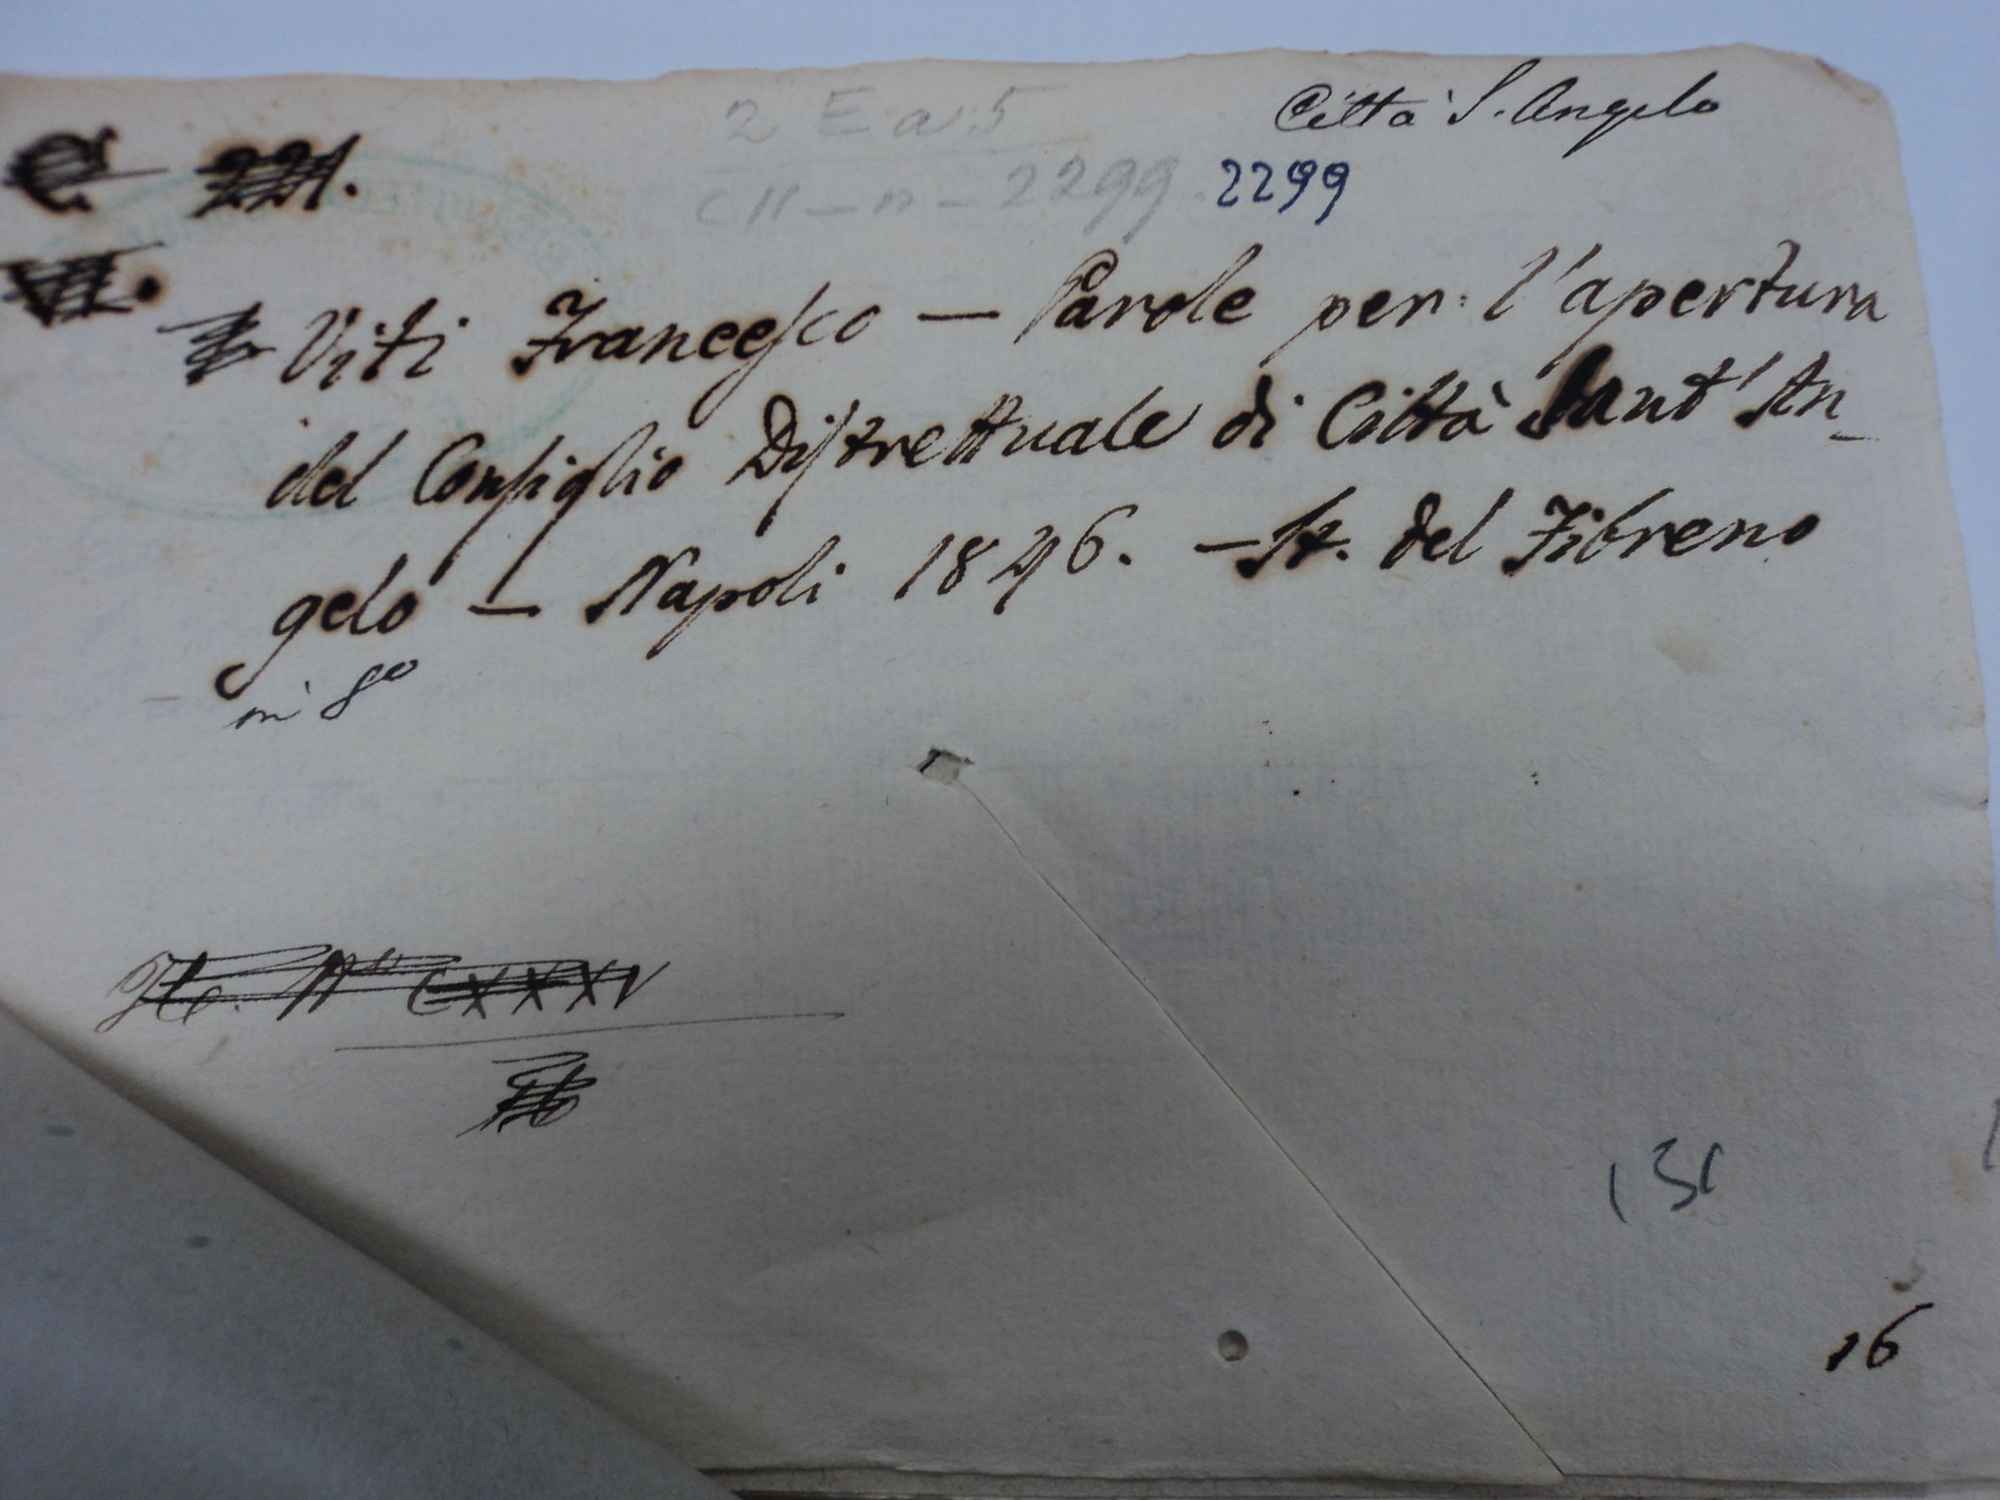 2 E a 5
Città S. Angelo
C 221.
CII - n - 2299
2299
VII.
Viti Francesco — Parole per l'apertura
del Consiglio Distrettuale di Città Sant'An-
gelo — Napoli 1846. — St. del Fibreno
in 8o
CXXXV
131
16